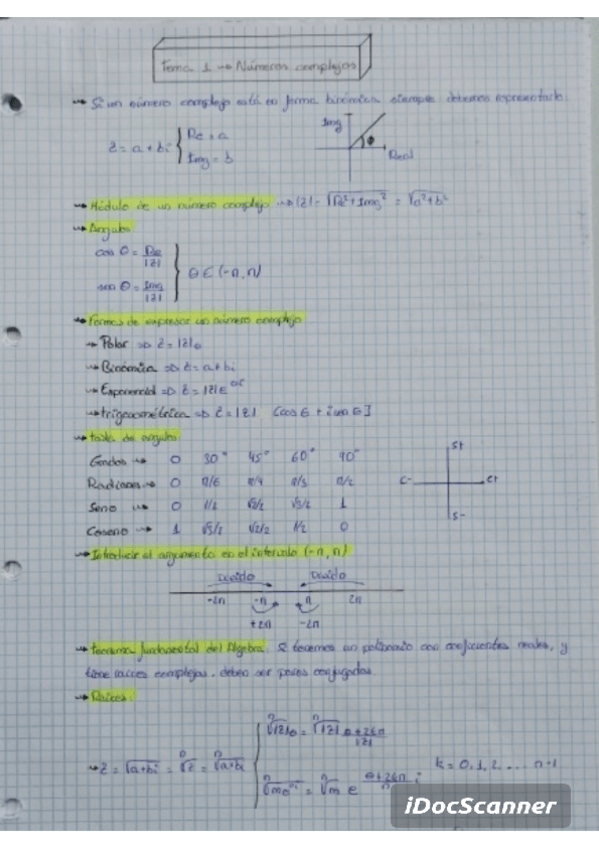 Tema 1 → Números complejos
→ Si un número complejo está en forma binómica siempre debemos representarlo.
z = a + bi { Re = a
Img = b
Img
θ
Real
→ Módulo de un número complejo → |z| = √Re²+Img² = √a²+b²
→ Ángulo
cos θ = Re/|z|
sen θ = Img/|z|
} θ ∈ (-π, π)
→ Formas de expresar un número complejo
→ Polar => z = |z|θ
→ Binómica => z = a+bi
→ Exponencial => z = |z|e^θi
→ trigonométrica => z = |z| [cos θ + i sen θ]
→ tabla de ángulos
Grados → 0 30° 45° 60° 90°
Radianes → 0 π/6 π/4 π/3 π/2
Seno → 0 1/2 √2/2 √3/2 1
Coseno → 1 √3/2 √2/2 1/2 0
S+
C- C+
S-
→ Introducir el argumento en el intervalo (-π, π)
-2π -π π 2π
+2π -2π
→ teorema fundamental del Álgebra. Si tenemos un polinomio con coeficientes reales, y
tiene raíces complejas, deben ser pares conjugados.
→ Raíces:
→ z = √a+bi = ⁿ√z = ⁿ√a+bi
k = 0, 1, 2 ... n-1
iDocScanner